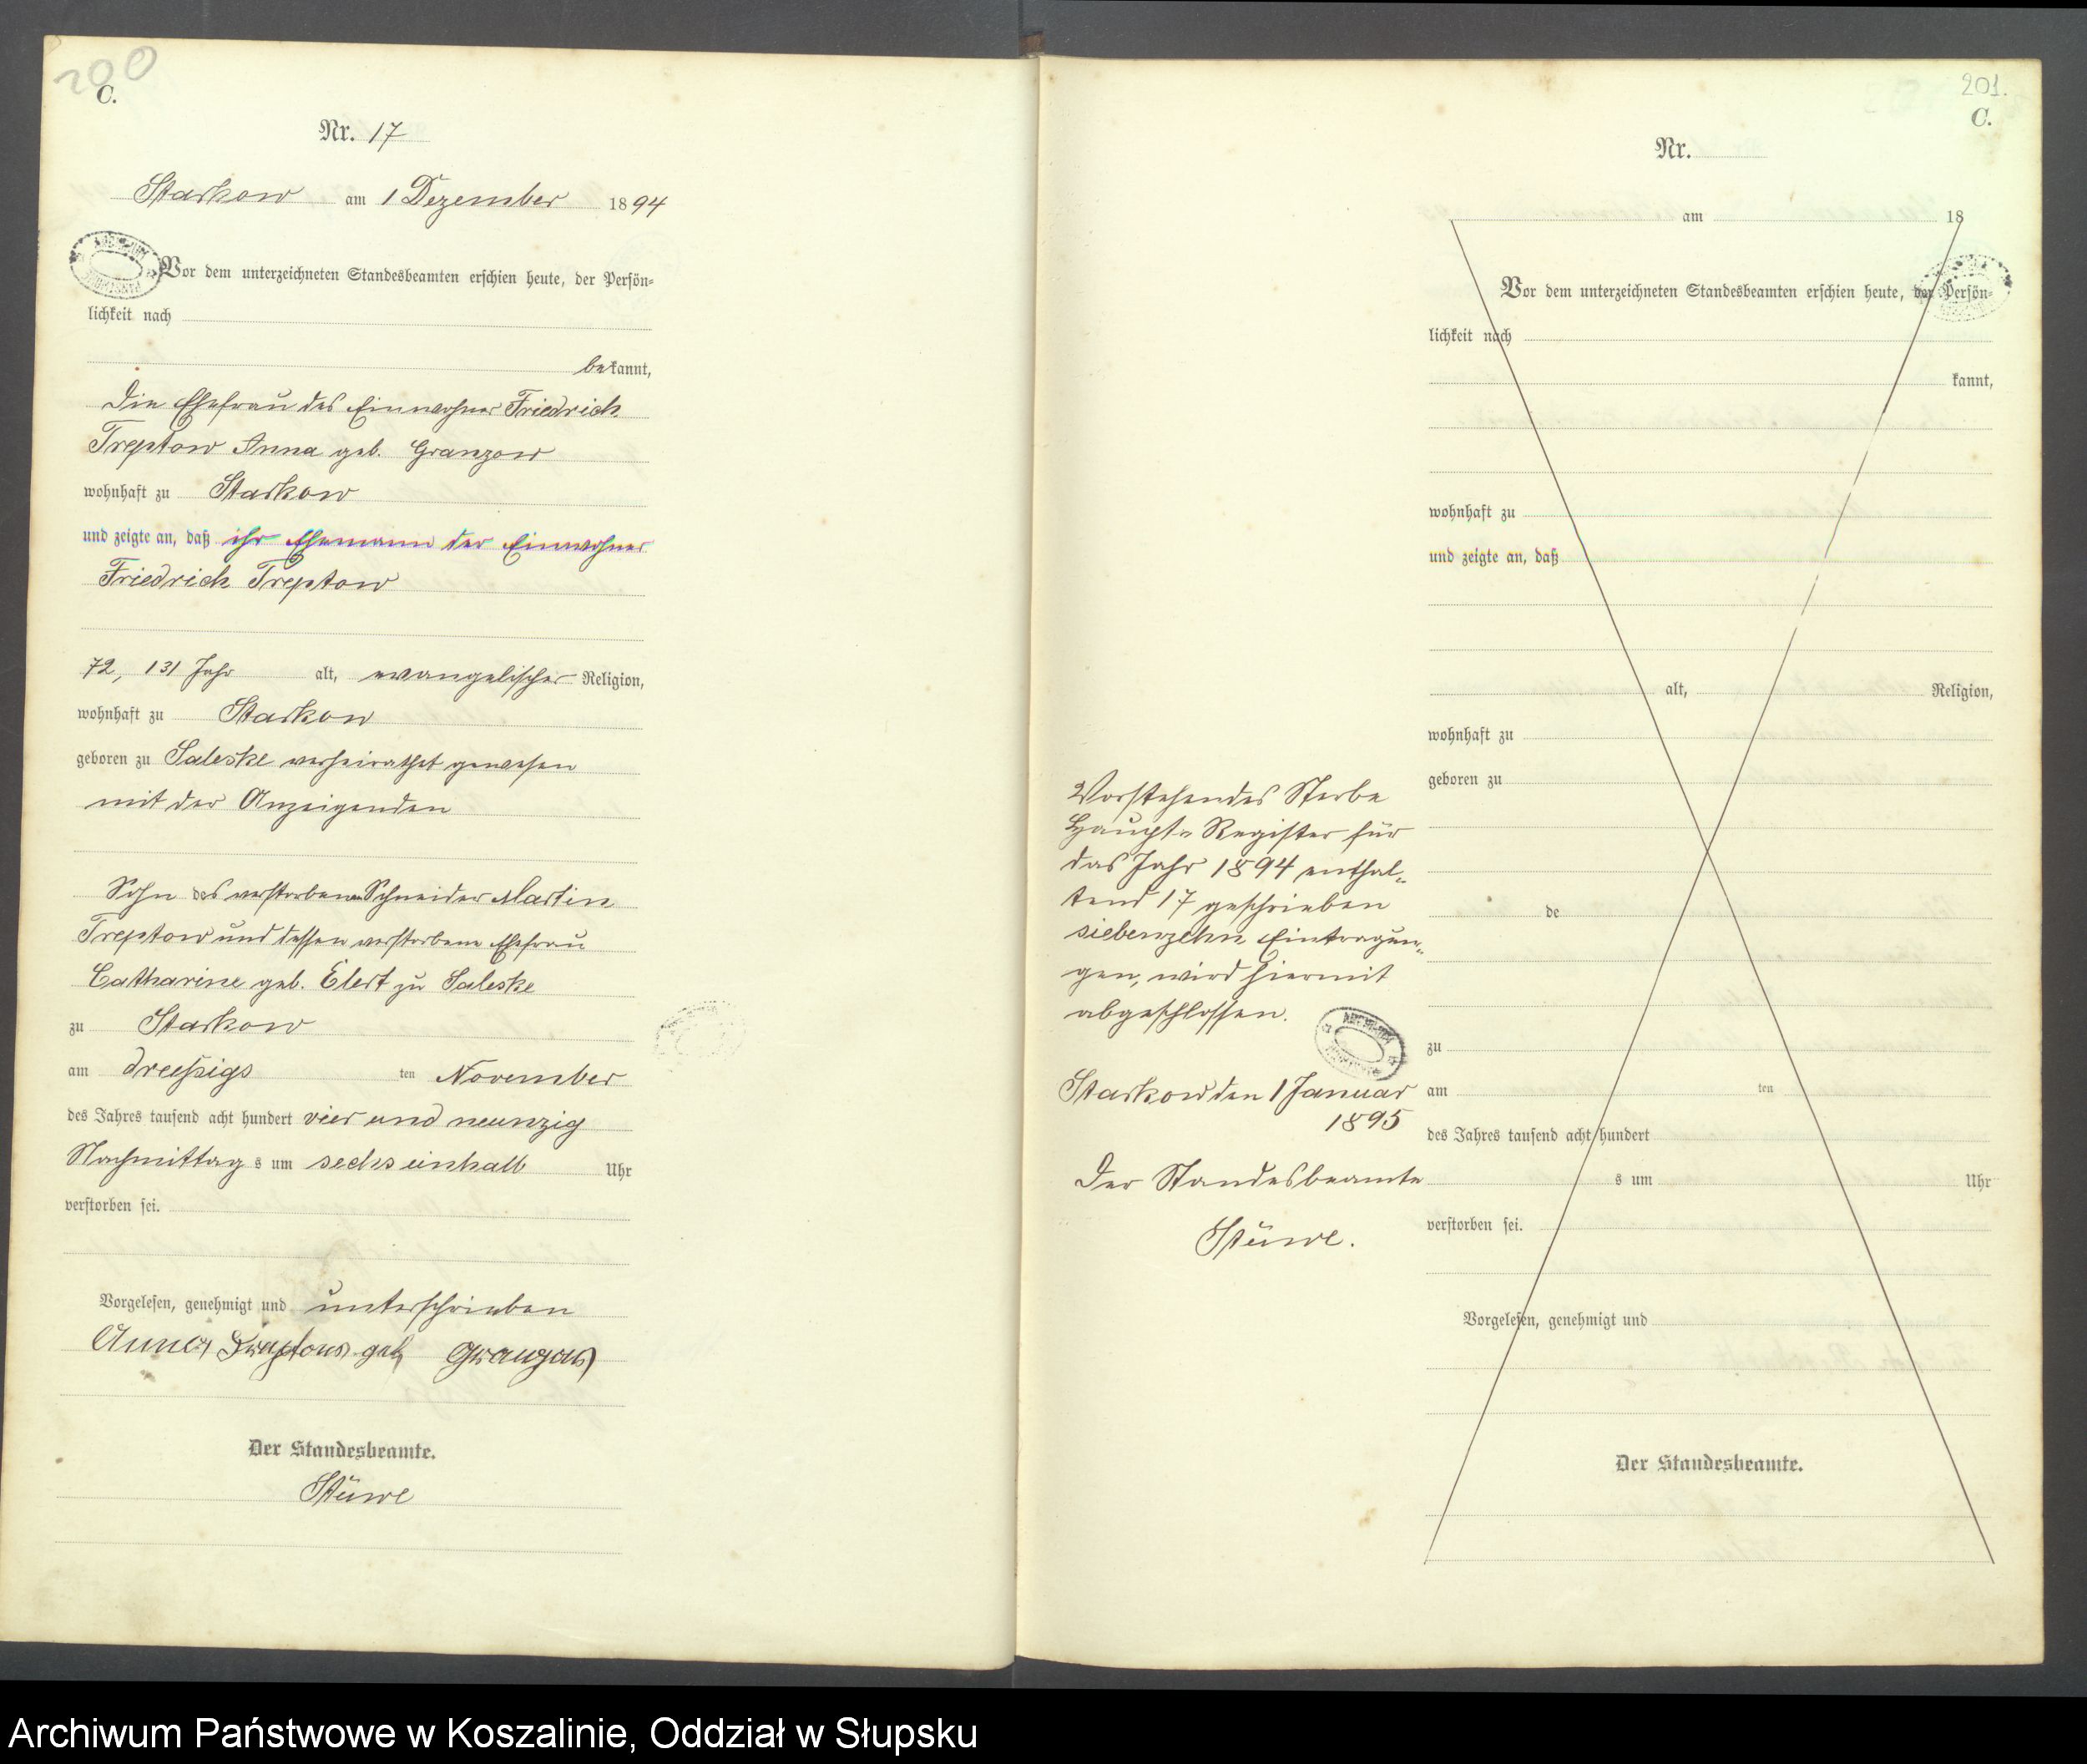 200
C.
Nr. 17
Starkow am 1 Dezember 1894
Vor dem unterzeichneten Standesbeamten erschien heute, der Persön=
lichkeit nach
bekannt,
die Ehefrau des Einwohner Friedrich
Treptow Anna geb. Granzow
wohnhaft zu Starkow
und zeigte an, daß ihr Ehemann der Einwohner
Friedrich Treptow
72, 131 Jahr alt, evangelischer Religion,
wohnhaft zu Starkow
geboren zu Saleske verheirathet gewesen
mit der Anzeigenden
Sohn des verstorbenen Schneider Martin
Treptow und dessen verstorbene Ehefrau
Catharine geb. Elert zu Saleske
zu Starkow
am dreißigs ten November
des Jahres tausend acht hundert vier und neunzig
Nachmittag s um sechs einhalb Uhr
verstorben sei.
Vorgelesen, genehmigt und unterschrieben
Anna Treptow geb Granzow
Der Standesbeamte.
Stüwe
201.
C.
Nr.
am 18
Vor dem unterzeichneten Standesbeamten erschien heute, der Persön=
lichkeit nach
kannt,
wohnhaft zu
und zeigte an, daß
alt, Religion,
wohnhaft zu
geboren zu
de
zu
am ten
des Jahres tausend acht hundert
s um Uhr
verstorben sei.
Vorgelesen, genehmigt und
Der Standesbeamte.
Vorstehendes Sterbe
Haupt=Register für
das Jahr 1894 enthal=
tend 17 geschrieben
siebenzehn Eintragun=
gen, wird hiermit
abgeschlossen.
Starkow den 1 Januar
1895
Der Standesbeamte
Stüwe.
Archiwum Państwowe w Koszalinie, Oddział w Słupsku